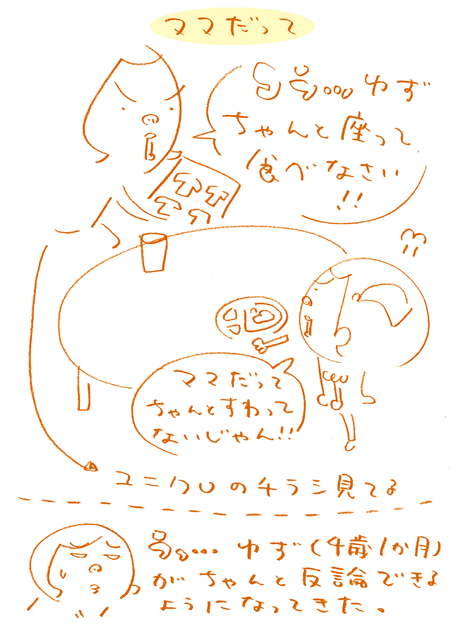 ママだって
ゆず
ちゃんと座って
食べなさい
!!
ママだって
ちゃんとすわって
ないじゃん!!
ユニクロのチラシ見てる
ゆず(4歳1か月)
がちゃんと反論できる
ようになってきた。